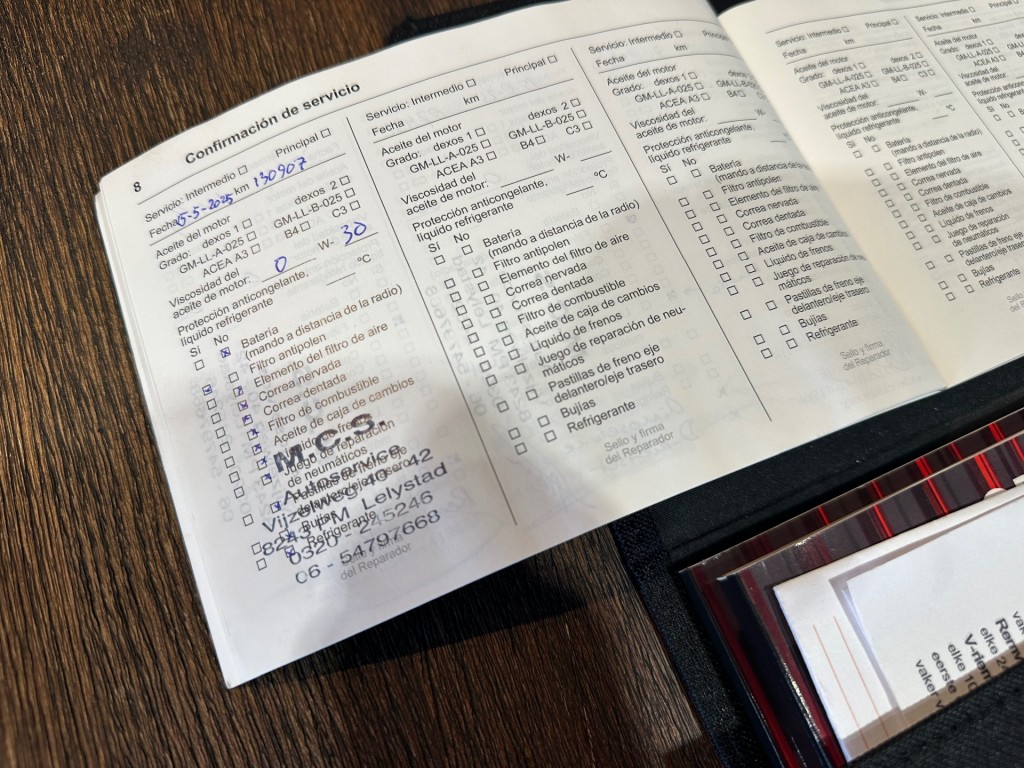 8
Confirmación de servicio
Servicio: Intermedio Principal
Fecha 5-5-2025 km 130907
Aceite del motor
Grado: dexos 1 dexos 2
GM-LL-A-025 GM-LL-B-025
ACEA A3 B4 C3
Viscosidad del
aceite de motor: 0 W- 30
Protección anticongelante,
líquido refrigerante °C
Sí No
Batería
(mando a distancia de la radio)
Filtro antipolen
Elemento del filtro de aire
Correa nervada
Correa dentada
Filtro de combustible
Aceite de caja de cambios
Juego de reparación
de neumáticos
Bujías
Refrigerante
del Reparador
M.C.S.
Autoservice
Vijzelweg 40 - 42
Lelystad
0320 - 245246
06 - 54797668
Servicio: Intermedio Principal
Fecha km
Aceite del motor
Grado: dexos 1 dexos 2
GM-LL-A-025 GM-LL-B-025
ACEA A3 B4 C3
Viscosidad del
aceite de motor: W-
Protección anticongelante,
líquido refrigerante °C
Sí No
Batería
(mando a distancia de la radio)
Filtro antipolen
Elemento del filtro de aire
Correa nervada
Correa dentada
Filtro de combustible
Aceite de caja de cambios
Líquido de frenos
Juego de reparación de neu-
máticos
Pastillas de freno eje
delantero/eje trasero
Bujías
Refrigerante
Sello y firma
del Reparador
Servicio: Intermedio Principal
Fecha km
Aceite del motor
Grado: dexos 1
GM-LL-A-025
ACEA A3 B4
Viscosidad del
aceite de motor: W-
Protección anticongelante,
líquido refrigerante
Sí No
Batería
(mando a distancia
Filtro antipolen
Elemento del filtro de
Correa nervada
Correa dentada
Filtro de combustible
Aceite de caja de
Líquido de frenos
Juego de reparación
máticos
Pastillas de freno eje
delantero/eje trasero
Bujías
Refrigerante
Sello y firma
del Reparador
Servicio: Intermedio Principal
Fecha km
Aceite del motor
Grado: dexos 1 dexos 2
GM-LL-A-025 GM-LL-B-025
ACEA A3 B4 C3
Viscosidad del
aceite de motor: W-
Protección anticongelante,
líquido refrigerante °C
Sí No
Batería
(mando a distancia de la radio)
Filtro antipolen
Elemento del filtro de aire
Correa nervada
Correa dentada
Filtro de combustible
Aceite de caja de cambios
Líquido de frenos
Juego de reparación
de neumáticos
Pastillas de freno eje
delantero/eje trasero
Bujías
Refrigerante
Sello y firma
del Reparador
Servicio: Intermedio
Fecha
Aceite del motor
Grado: dexos 1
GM-LL-A-025
ACEA A3
Viscosidad del
aceite de motor:
elke
eerste
vaker